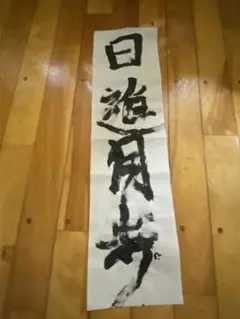 日進月歩